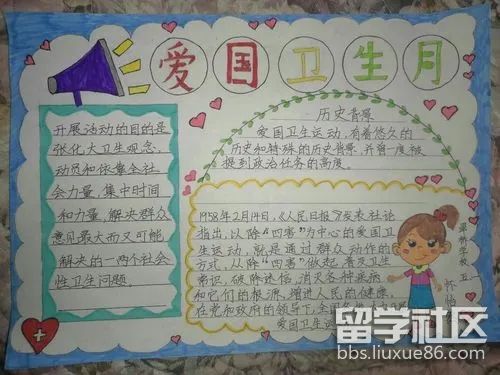 爱国卫生月
开展活动的目的是
强化大卫生观念,
动员和依靠全社
会力量,集中时间
和力量,解决群众
意见最大而又可能
解决的一两个社会
性卫生问题。
历史背景
爱国卫生运动,有着悠久的
历史和特殊的历史背景,并曾一度被
提到政治任务的高度。
1958年2月14日,《人民日报》发表社论
指出,以除“四害”为中心的爱国卫
生运动,就是通过群众动作的
方式,从除“四害”做起,普及卫生
常识,破除迷信,消灭各种疾病
和它们的根源,增进人民的健康,
在党和政府的领导下,全国
爱国卫生运
五
留学社区
bbs.liuxue86.com